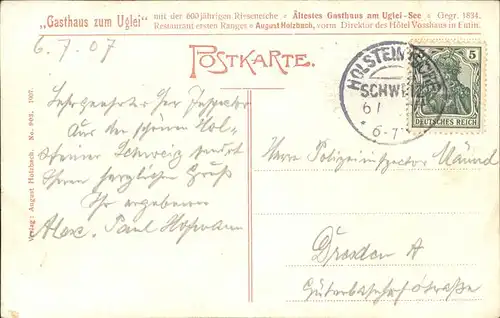 „Gasthaus zum Uglei" mit der 600jährigen Rieseneiche • Ältestes Gasthaus am Uglei-See • Gegr. 1834.
Restaurant ersten Ranges • August Holzbach, vorm Direktor des Hôtel Vosshaus in Eutin.
6. 7. 07
POSTKARTE.
Sehr geehrter Herr Inspector
Aus der schönen Hol-
steiner Schweiz sendet
Ihnen herzlichen Gruß
Ihr ergebener
Alex. Paul
Verlag: August Holzbach. No. 1907.
HOLSTEINISCHE
SCHWEIZ
6/
5
DEUTSCHES REICH
Herrn Polizeiinspector
Dresden A
Güterbahnhofstraße